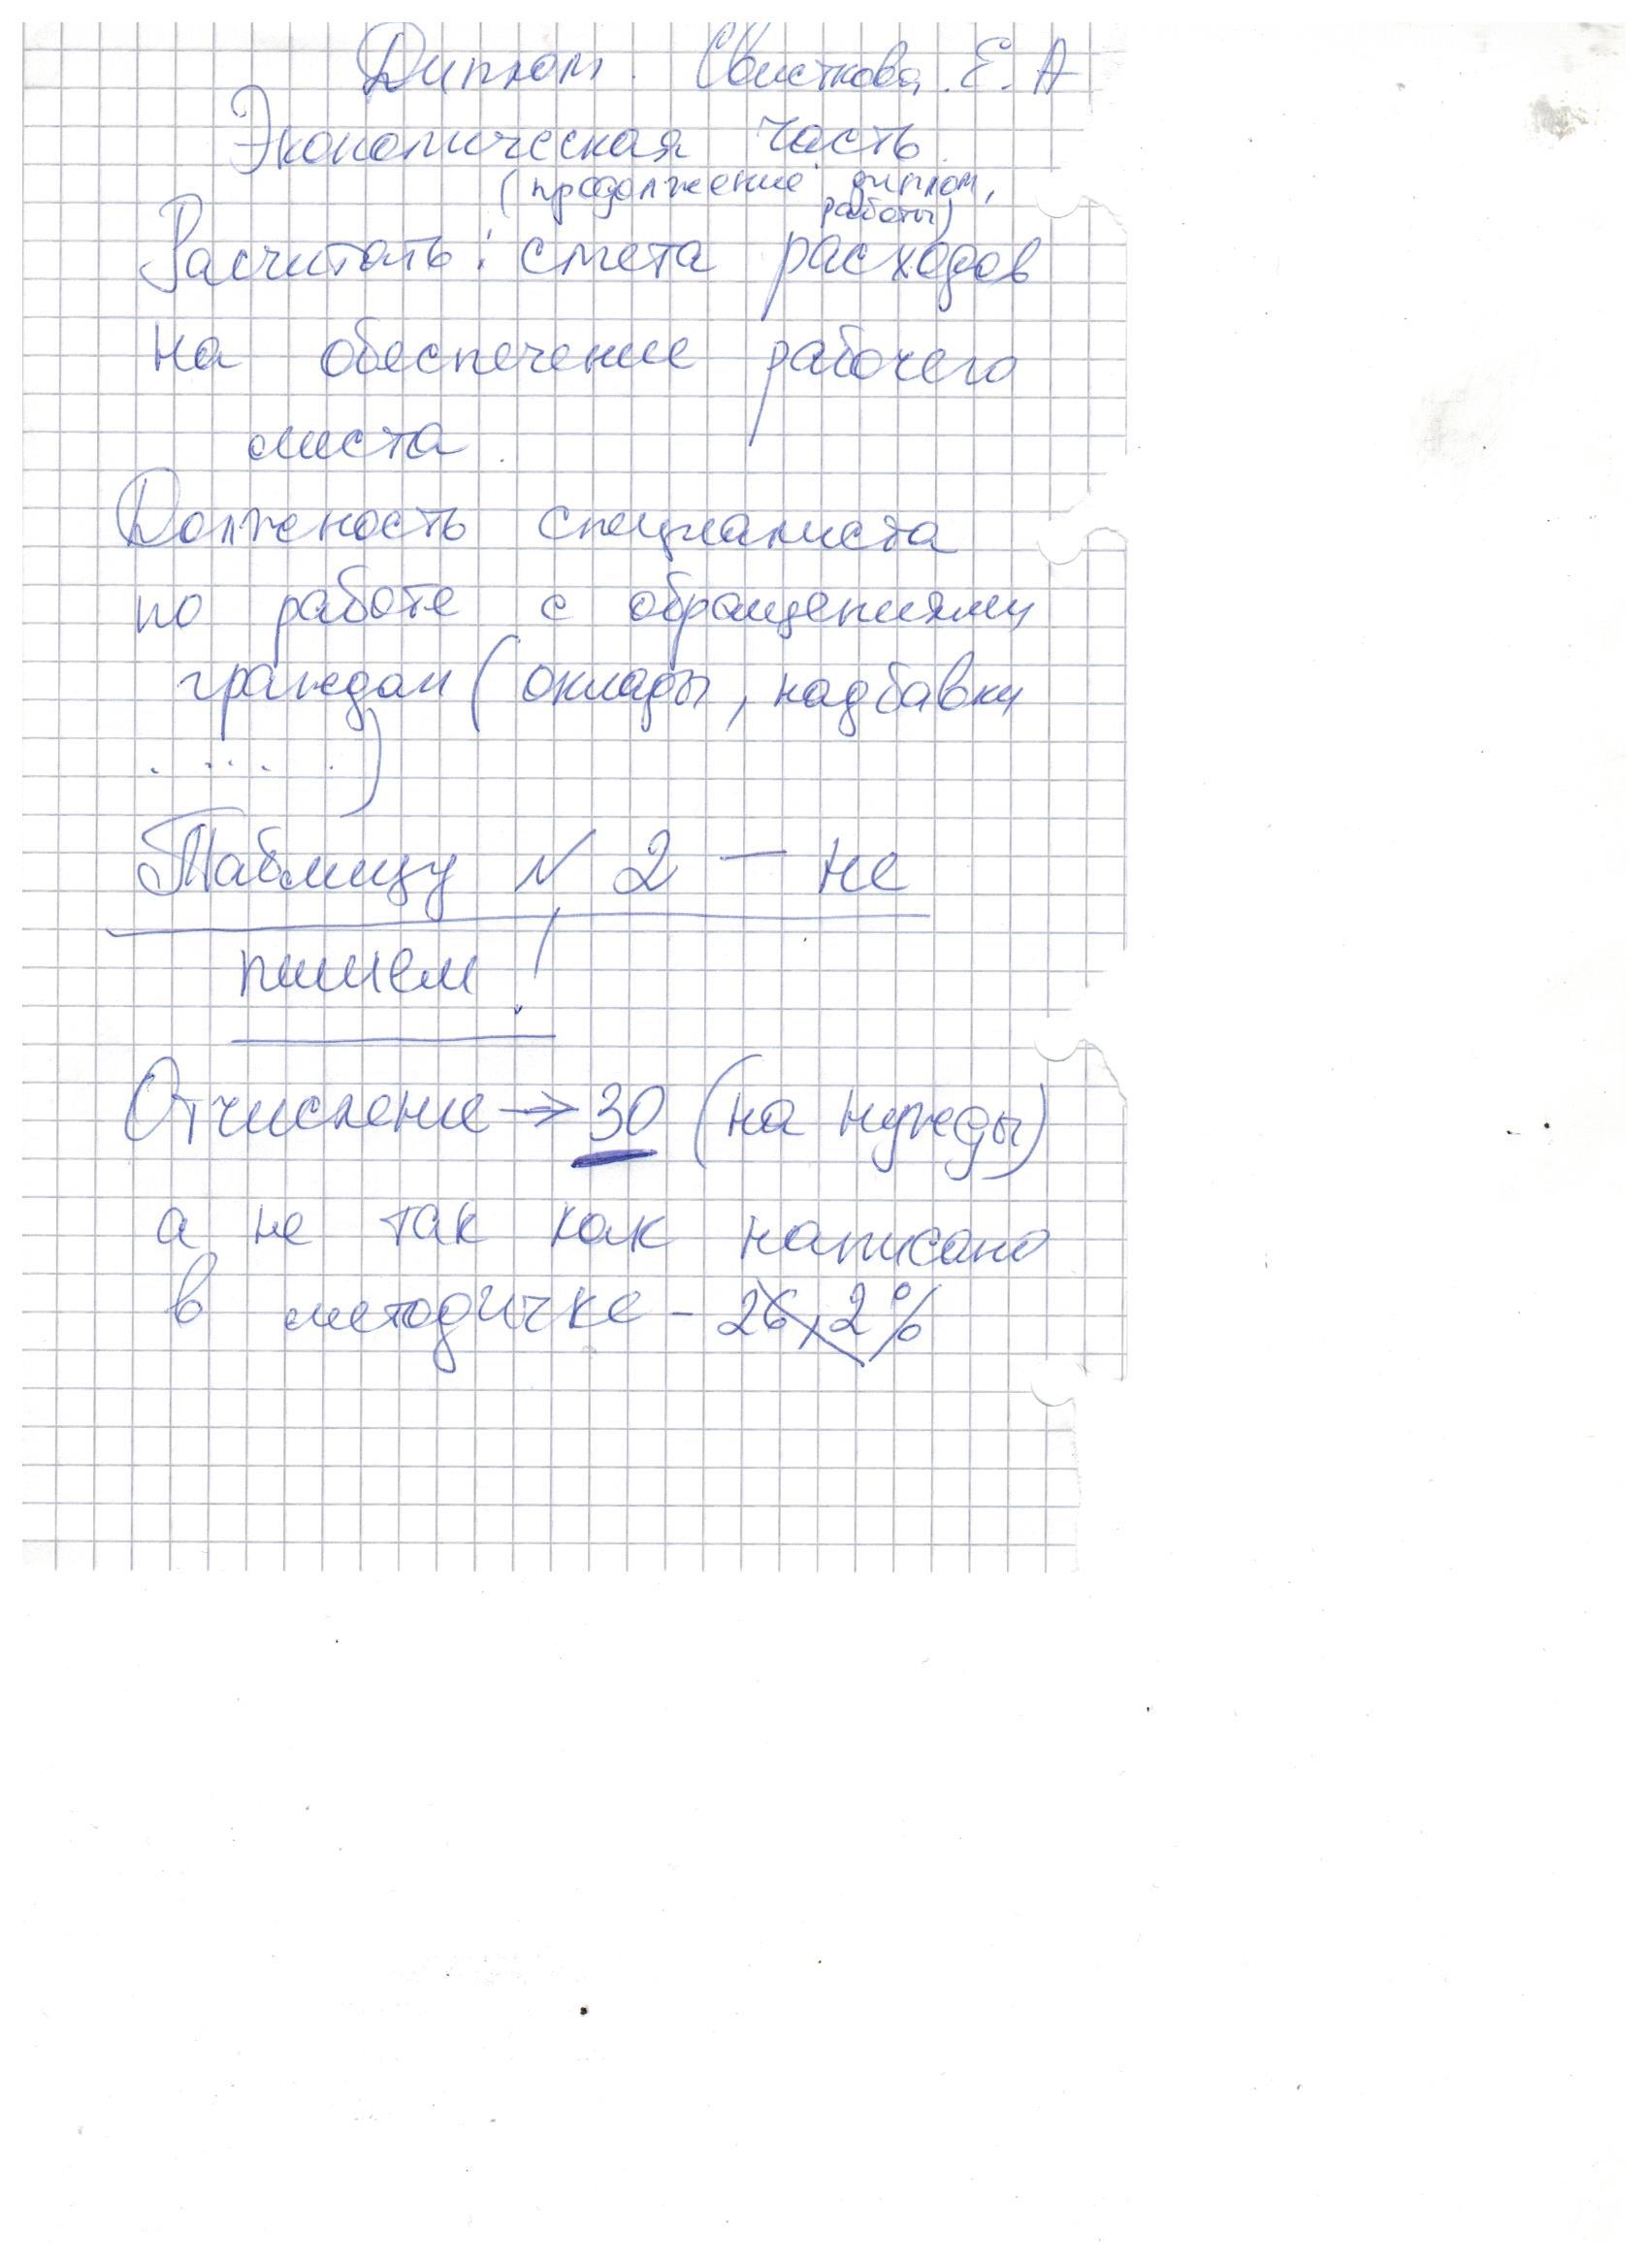 Диплом. Свисткова. Е. А
Экономическая часть
(продолжение диплом,
работы)
Расчитать: смета расходов
на обеспечение рабочего
места.
Должность специалиста
по работе с обращениями
граждан (оклады, надбавки
. . . . . )
Таблицу № 2 — не
пишем!
Отчисление → 30 (на нужды)
а не так как написано
в методичке - 26,2%